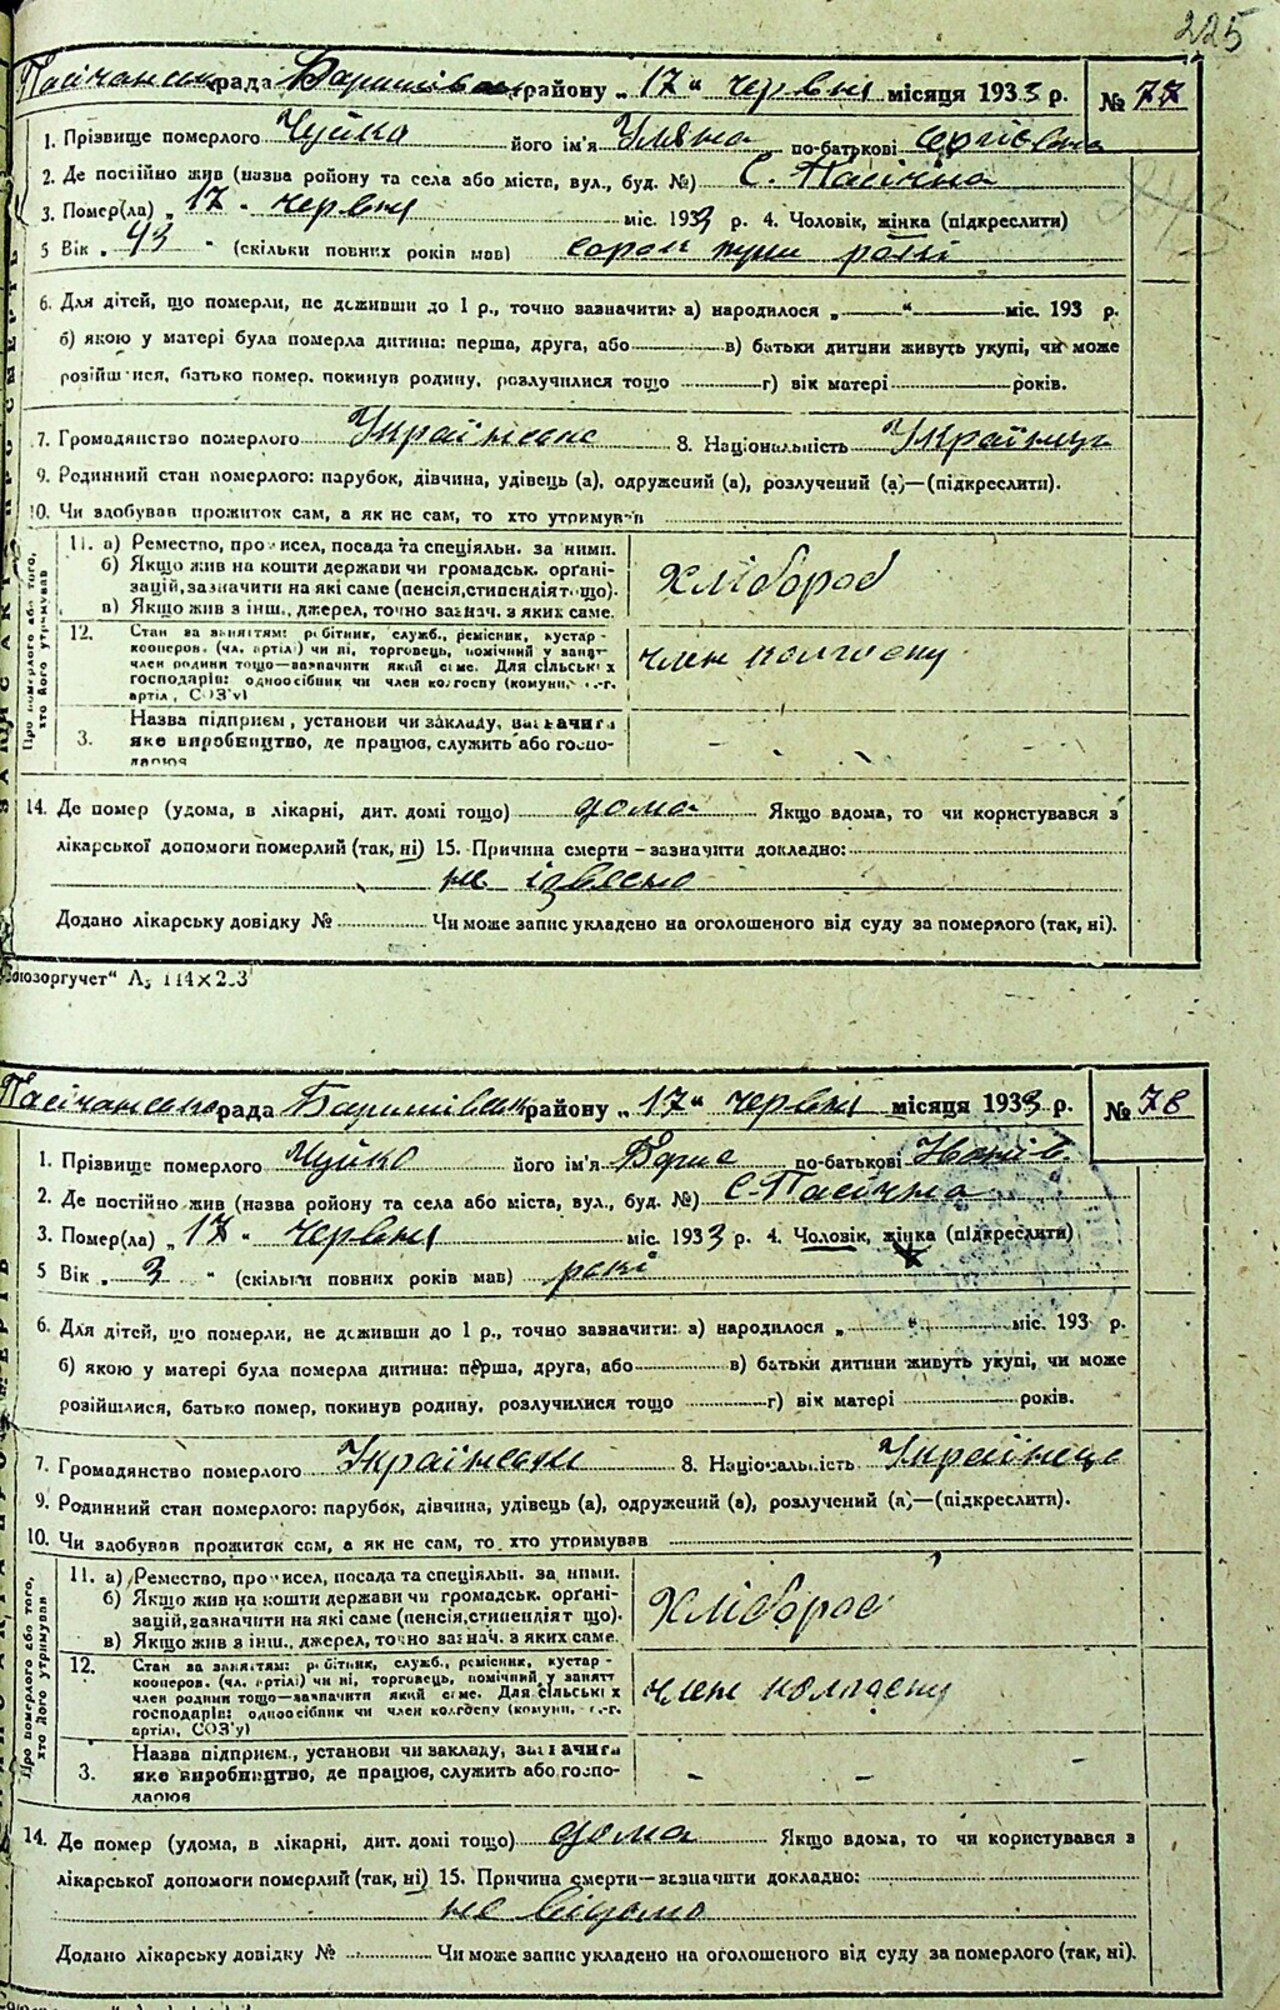 225
Пасічанська рада Баришівського району „17" червня місяця 1933 р. № 77
1. Прізвище померлого Чуйко його ім'я Уляна по-батькові Сергієвна
2. Де постійно жив (назва ройону та села або міста, вул., буд. №) С. Пасічна
3. Помер(ла) „17" червня міс. 1933 р. 4. Чоловік, жінка (підкреслити)
5 Вік „43" (скільки повних років мав) сорок три роки
6. Для дітей, що померли, не доживши до 1 р., точно зазначити: а) народилося „ " міс. 193 р.
б) якою у матері була померла дитина: перша, друга, або в) батьки дитини живуть укупі, чи може
розійшлися, батько помер, покинув родину, розлучилися тощо г) вік матері років.
7. Громадянство померлого Українське 8. Національність Українць
9. Родинний стан померлого: парубок, дівчина, удівець (а), одружений (а), розлучений (а)—(підкреслити).
10. Чи здобував прожиток сам, а як не сам, то хто утримував
Про померлого або того, хто його утримував
11. а) Ремество, промисел, посада та спеціяльн. за ними.
б) Якщо жив на кошти держави чи громадськ. органі-
зацій, зазначити на які саме (пенсія, стипендія тощо).
в) Якщо жив з інш., джерел, точно зазнач. з яких саме.
Хлібороб
12. Стан за заняттям: робітник, служб., ремісник, кустар -
кооперов. (чл. артілі) чи ні, торговець, помічний у занят-
член родини тощо—зазначити який саме. Для сільських
господарів: одноосібник чи член колгоспу (комуни, с.-г.
артіл, СОЗ'у)
член колгоспу
3. Назва підприєм., установи чи закладу, зазначити
яке виробництво, де працюв, служить або госпо-
дарюв
14. Де помер (удома, в лікарні, дит. домі тощо) дома Якщо вдома, то чи користувався з
лікарської допомоги померлий (так, ні) 15. Причина смерти – зазначити докладно:
не ізвесно
Додано лікарську довідку № Чи може запис укладено на оголошеного від суду за померлого (так, ні).
"Союзоргучет" А5 114×2.3
Пасічанська рада Баришівськ району „17" червня місяця 1933 р. № 78
1. Прізвище померлого Чуйко його ім'я Борис по-батькові Іванів.
2. Де постійно жив (назва ройону та села або міста, вул., буд. №) С. Пасічна
3. Помер(ла) „17" червня міс. 1933 р. 4. Чоловік, жінка (підкреслити)
5 Вік „3" (скільки повних років мав) рокі
6. Для дітей, що померли, не доживши до 1 р., точно зазначити: а) народилося „ " міс. 193 р.
б) якою у матері була померла дитина: перша, друга, або в) батьки дитини живуть укупі, чи може
розійшлися, батько помер, покинув родину, розлучилися тощо г) вік матері років.
7. Громадянство померлого Українське 8. Національність Українець
9. Родинний стан померлого: парубок, дівчина, удівець (а), одружений (а), розлучений (а)—(підкреслити).
10. Чи здобував прожиток сам, а як не сам, то хто утримував
Про померлого або того, хто його утримував
11. а) Ремество, промисел, посада та спеціяльн. за ними.
б) Якщо жив на кошти держави чи громадськ. органі-
зацій, зазначити на які саме (пенсія, стипендія тощо).
в) Якщо жив з інш., джерел, точно зазнач. з яких саме.
Хлібороб
12. Стан за заняттям: робітник, служб., ремісник, кустар -
кооперов. (чл. артілі) чи ні, торговець, помічний у занятт
член родини тощо—зазначити який саме. Для сільських
господарів: одноосібник чи член колгоспу (комуни, с.-г.
артілі, СОЗ'у)
член колгоспу
3. Назва підприєм., установи чи закладу, зазначити
яке виробництво, де працюв, служить або госпо-
дарюв
14. Де помер (удома, в лікарні, дит. домі тощо) дома Якщо вдома, то чи користувався з
лікарської допомоги померлий (так, ні) 15. Причина смерти—зазначити докладно:
не відомо
Додано лікарську довідку № Чи може запис укладено на оголошеного від суду за померлого (так, ні).